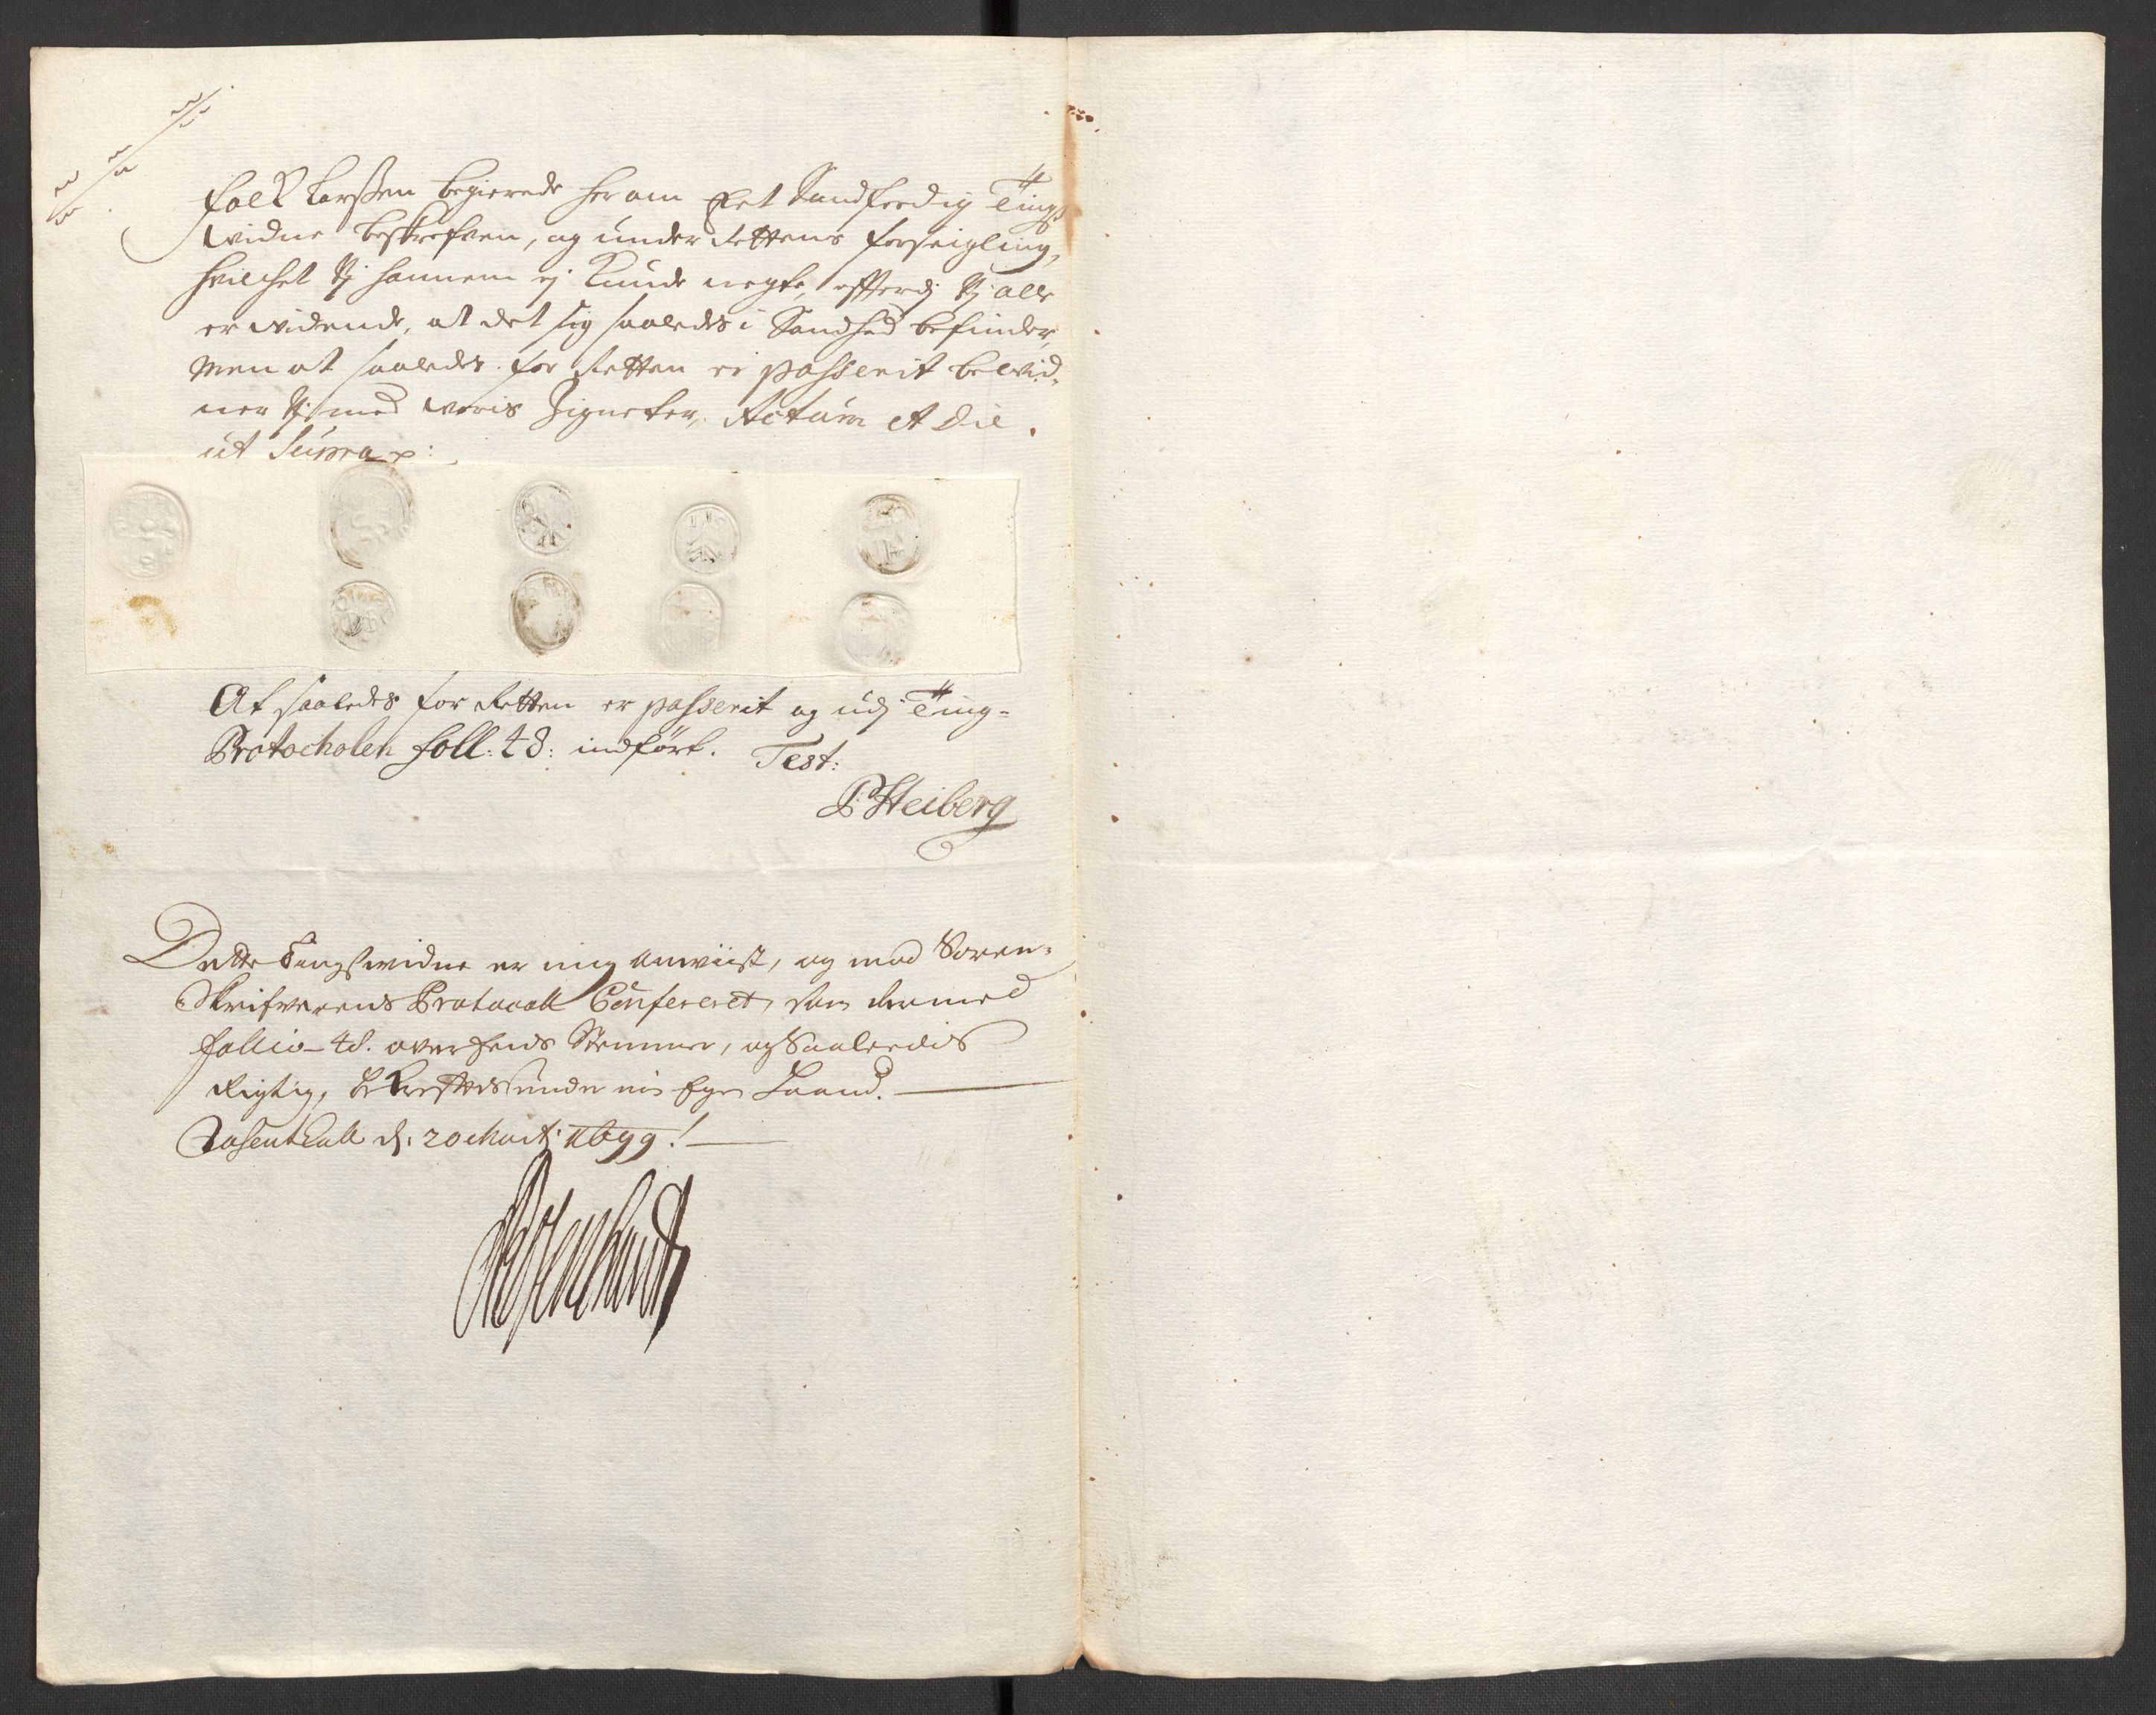 falk Larssen begierede her om Eet Sandferdig Tings
widne beskrefven, og under Rettens forseigling,
hvilchet Vj hannem ej kunde negte, efterdj Vj alle
er vidende, at det sig saaledes i Sandhed befinder,
Men at saaledes for Retten er passerit bevid-
ner Vj med voris Zigneter, Actum et Die
ut Supra
At saaledes for Retten er passerit og udj Ting-
Protocholen foll: 48: indført. Test:
P Heiberg
Dette Tingswidne er mig anviist, og med Soren-
Skrifverens Protocoll Confereret, som dermed
follio 48. overeens Stemmer, og Saaleedis
Rigtig, bekreftes under min Egen Haand.
Rosenthall d: 20 Martj 1699!